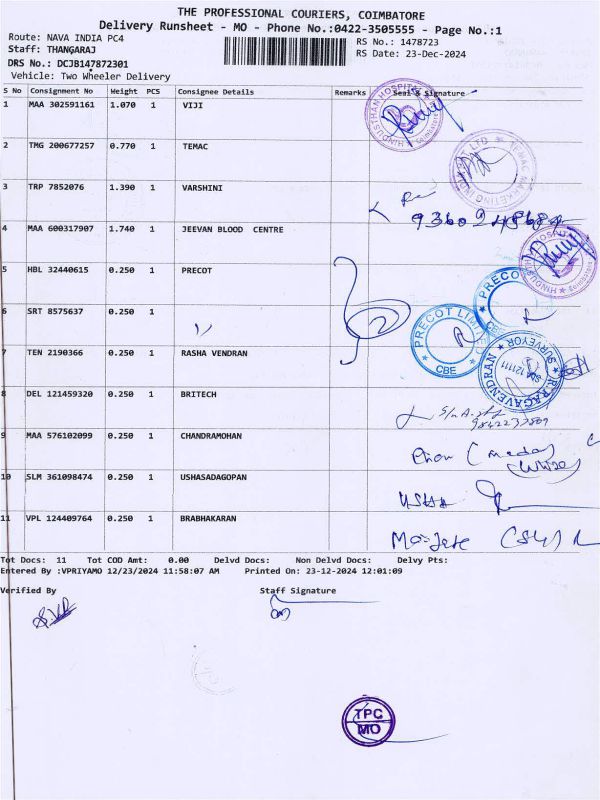 THE PROFESSIONAL COURIERS, COIMBATORE
Delivery Runsheet - MO - Phone No.:0422-3505555 - Page No.:1
Route: NAVA INDIA PC4
RS No.: 1478723
Staff: THANGARAJ
RS Date: 23-Dec-2024
DRS No.: DCJB147872301
Vehicle: Two Wheeler Delivery
S No Consignment No Weight PCS Consignee Details Remarks Seal & Signature
1 MAA 302591161 1.070 1 VIJI
HINDUSTHAN HOSPITAL Coimbatore
2 TMG 200677257 0.770 1 TEMAC
TEMAC MARKETING
3 TRP 7852076 1.390 1 VARSHINI
4 MAA 600317907 1.740 1 JEEVAN BLOOD CENTRE
HINDUSTHAN HOSPITAL Coimbatore
5 HBL 32440615 0.250 1 PRECOT
PRECOT
CBE
6 SRT 8575637 0.250 1
PRECOT LIMITED
CBE
7 TEN 2190366 0.250 1 RASHA VENDRAN
R. RAGAVENDRAN
SURVEYOR
8 DEL 121459320 0.250 1 BRITECH
9842237809
9 MAA 576102099 0.250 1 CHANDRAMOHAN
10 SLM 361098474 0.250 1 USHASADAGOPAN
USHA
11 VPL 124409764 0.250 1 BRABHAKARAN
Tot Docs: 11 Tot COD Amt: 0.00 Delvd Docs: Non Delvd Docs: Delvy Pts:
Entered By :VPRIYAMO 12/23/2024 11:58:07 AM Printed On: 23-12-2024 12:01:09
Verified By Staff Signature
TPC
MO